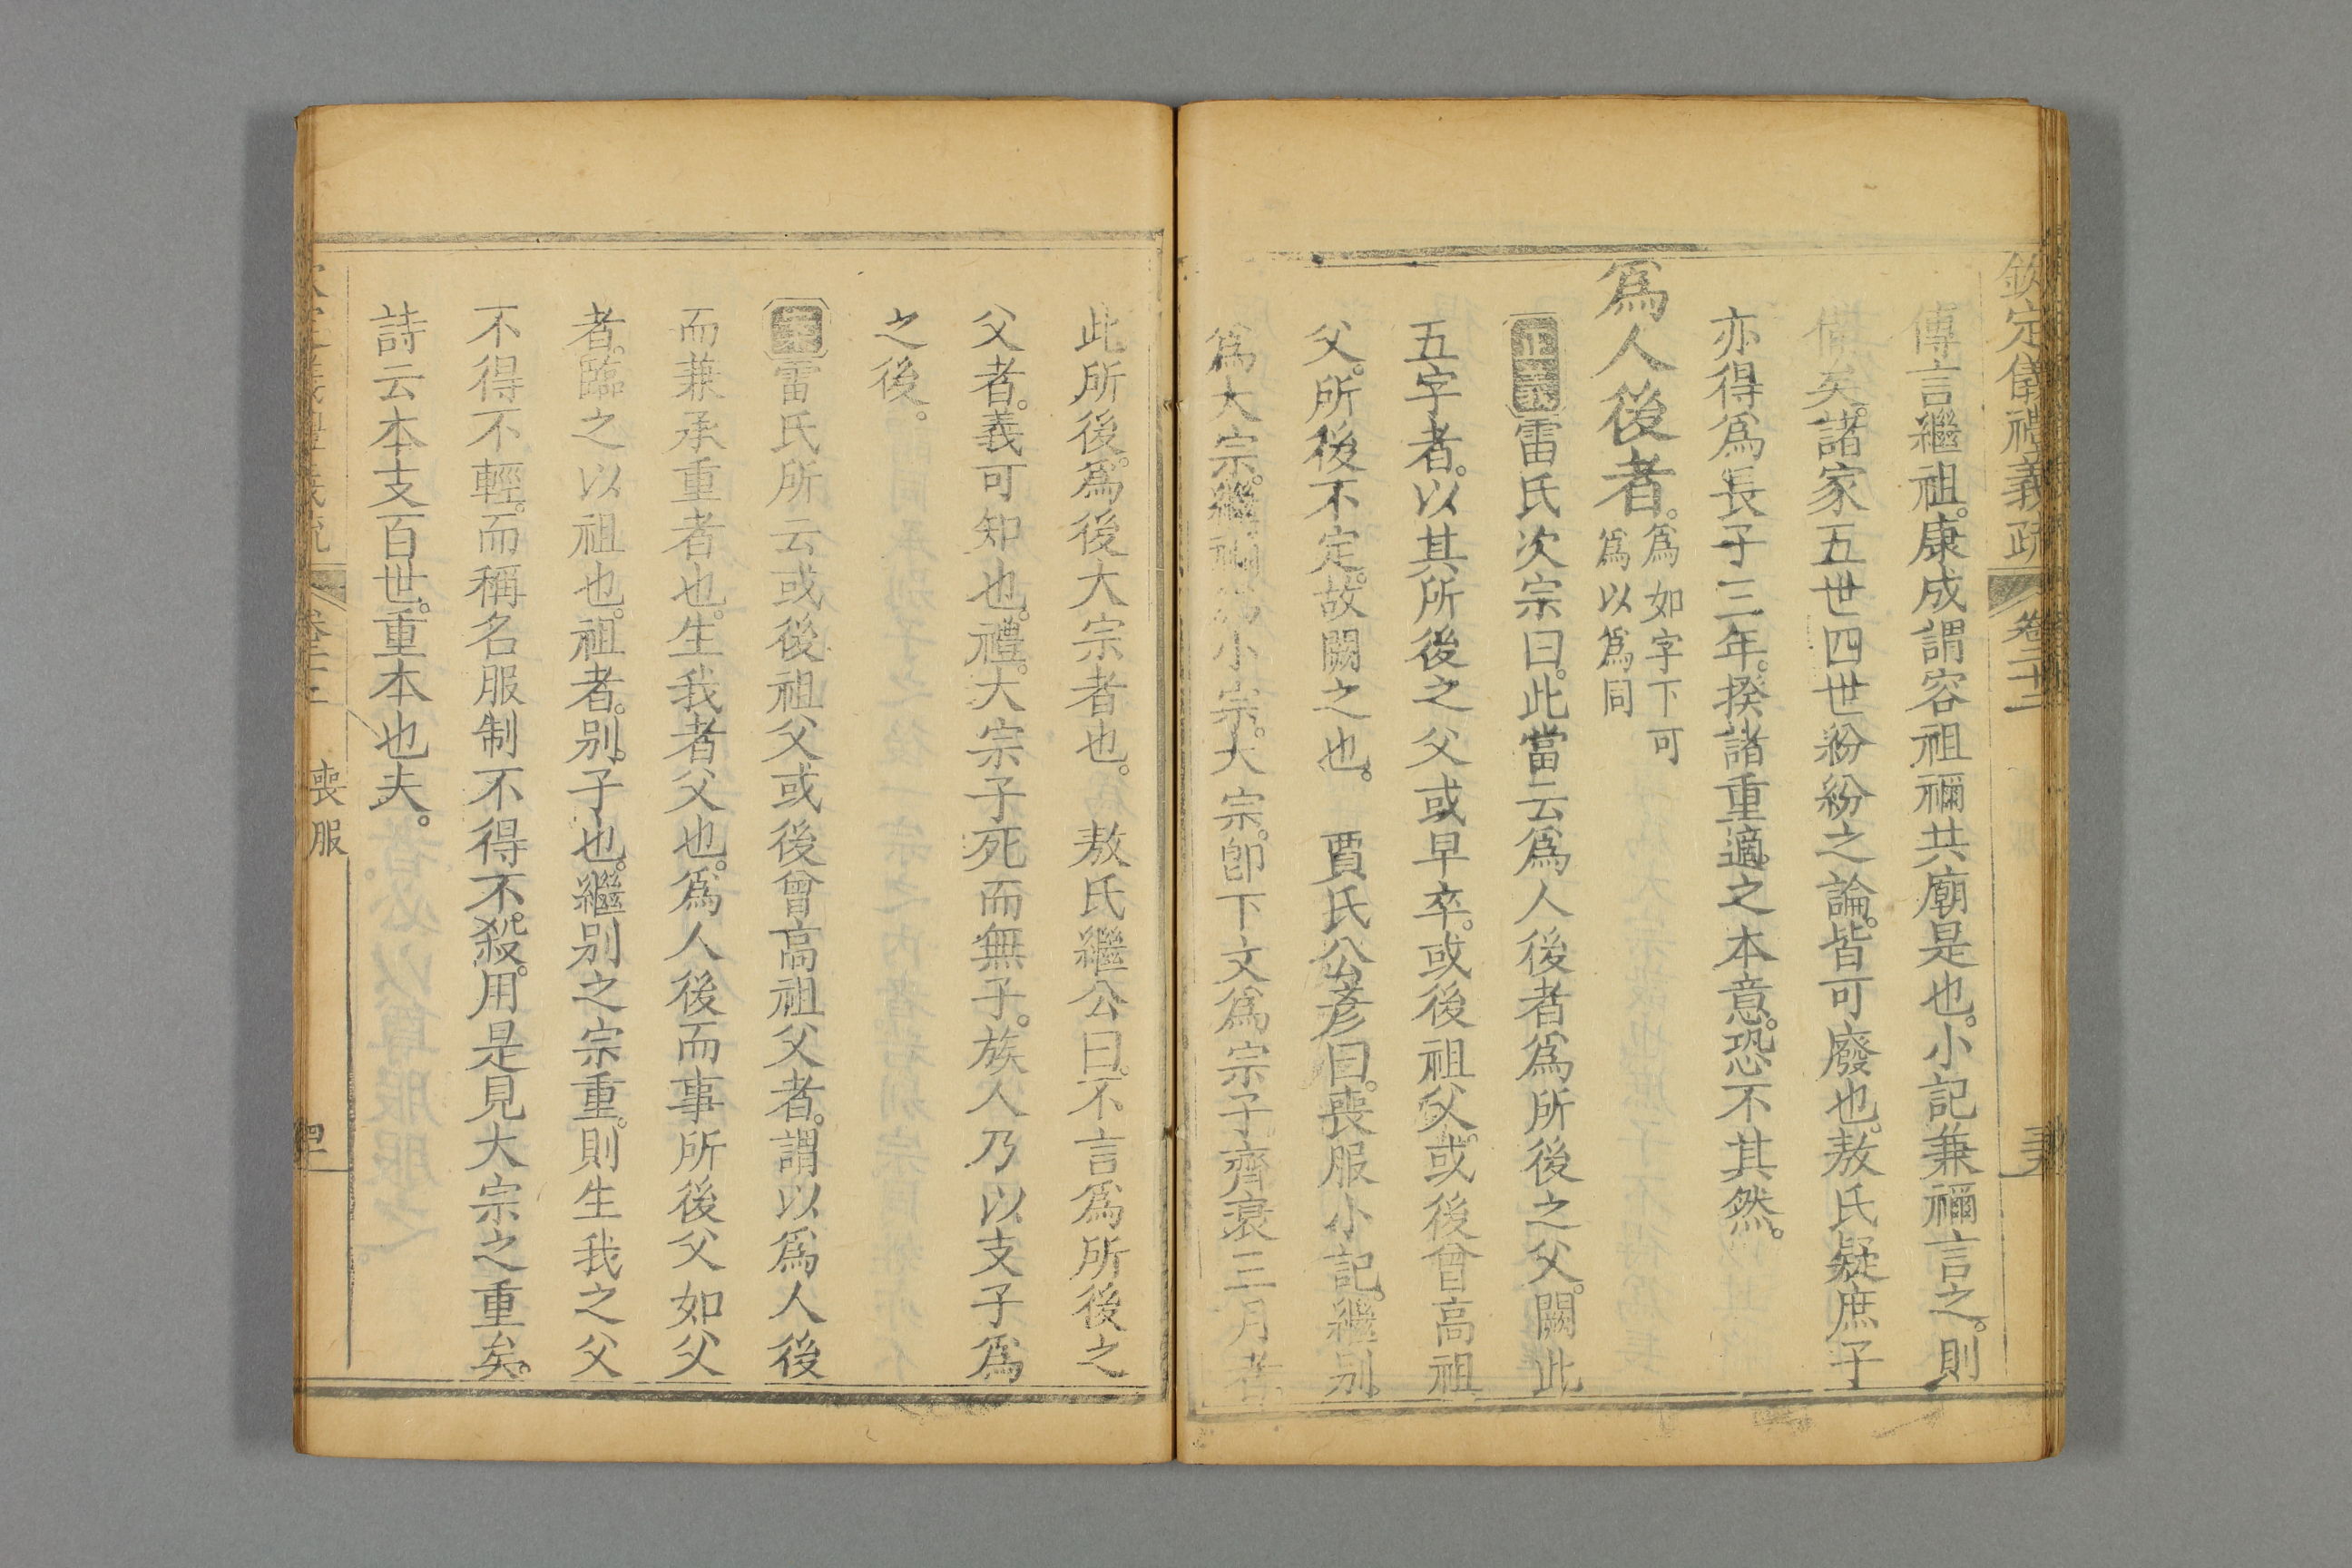 欽定儀禮義疏 卷二十二
傳言繼祖。康成謂容祖禰共廟是也。小記兼禰言之。則
備矣。諸家五世四世紛紛之論。皆可廢也。敖氏疑庶子
亦得爲長子三年。揆諸重適。之本意。恐不其然。
爲人後者。爲如字下可
爲以爲同
正義雷氏次宗曰。此當云爲人後者爲所後之父。闕此
五字者。以其所後之父或早卒。或後祖父。或後曾高祖
父。所後不定。故闕之也。 賈氏公彦曰。喪服小記。繼别。
爲大宗。繼禰爲小宗。大宗。卽下文爲宗子齊衰三月者。
此所後。爲後大宗者也。 敖氏繼公曰。不言爲所後之
父者。義可知也。禮。大宗子死而無子。族人乃以支子爲
之後。
案雷氏所云或後祖父或後曾高祖父者。謂以爲人後
而兼承重者也。生我者父也。爲人後而事所後父如父
者。臨之以祖也。祖者。别。子也。繼别之宗重。則生我之父
不得不輕。而稱名服制不得不。殺。用是見大宗之重矣。
詩云本支百世。重本也夫。
喪服